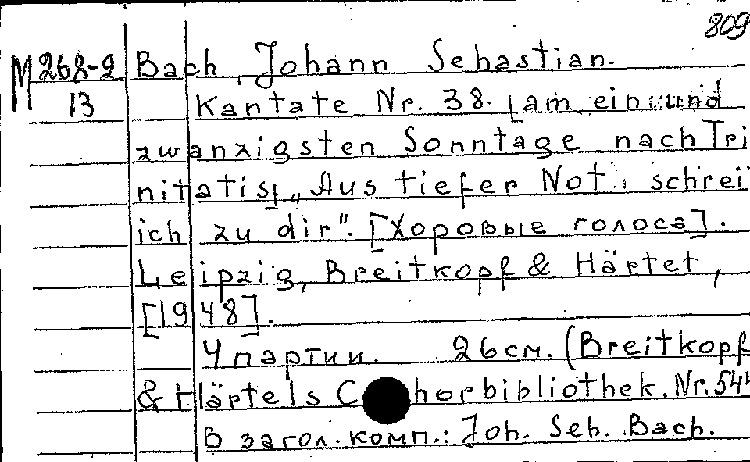 809
M 268-2 Bach, Johann Sebastian.
13 Kantate Nr. 38. [am ein und
zwanzigsten Sonntage nach Tri
nitatis] „Aus tiefer Not, schrei
ich zu dir". [Хоровые голоса].
Leipzig, Breitkopf & Härtet,
[1948].
4 партии. 26 см. (Breitkopf
& Härtels Chorbibliothek. Nr.
В загол. комп.: Joh. Seb. Bach.